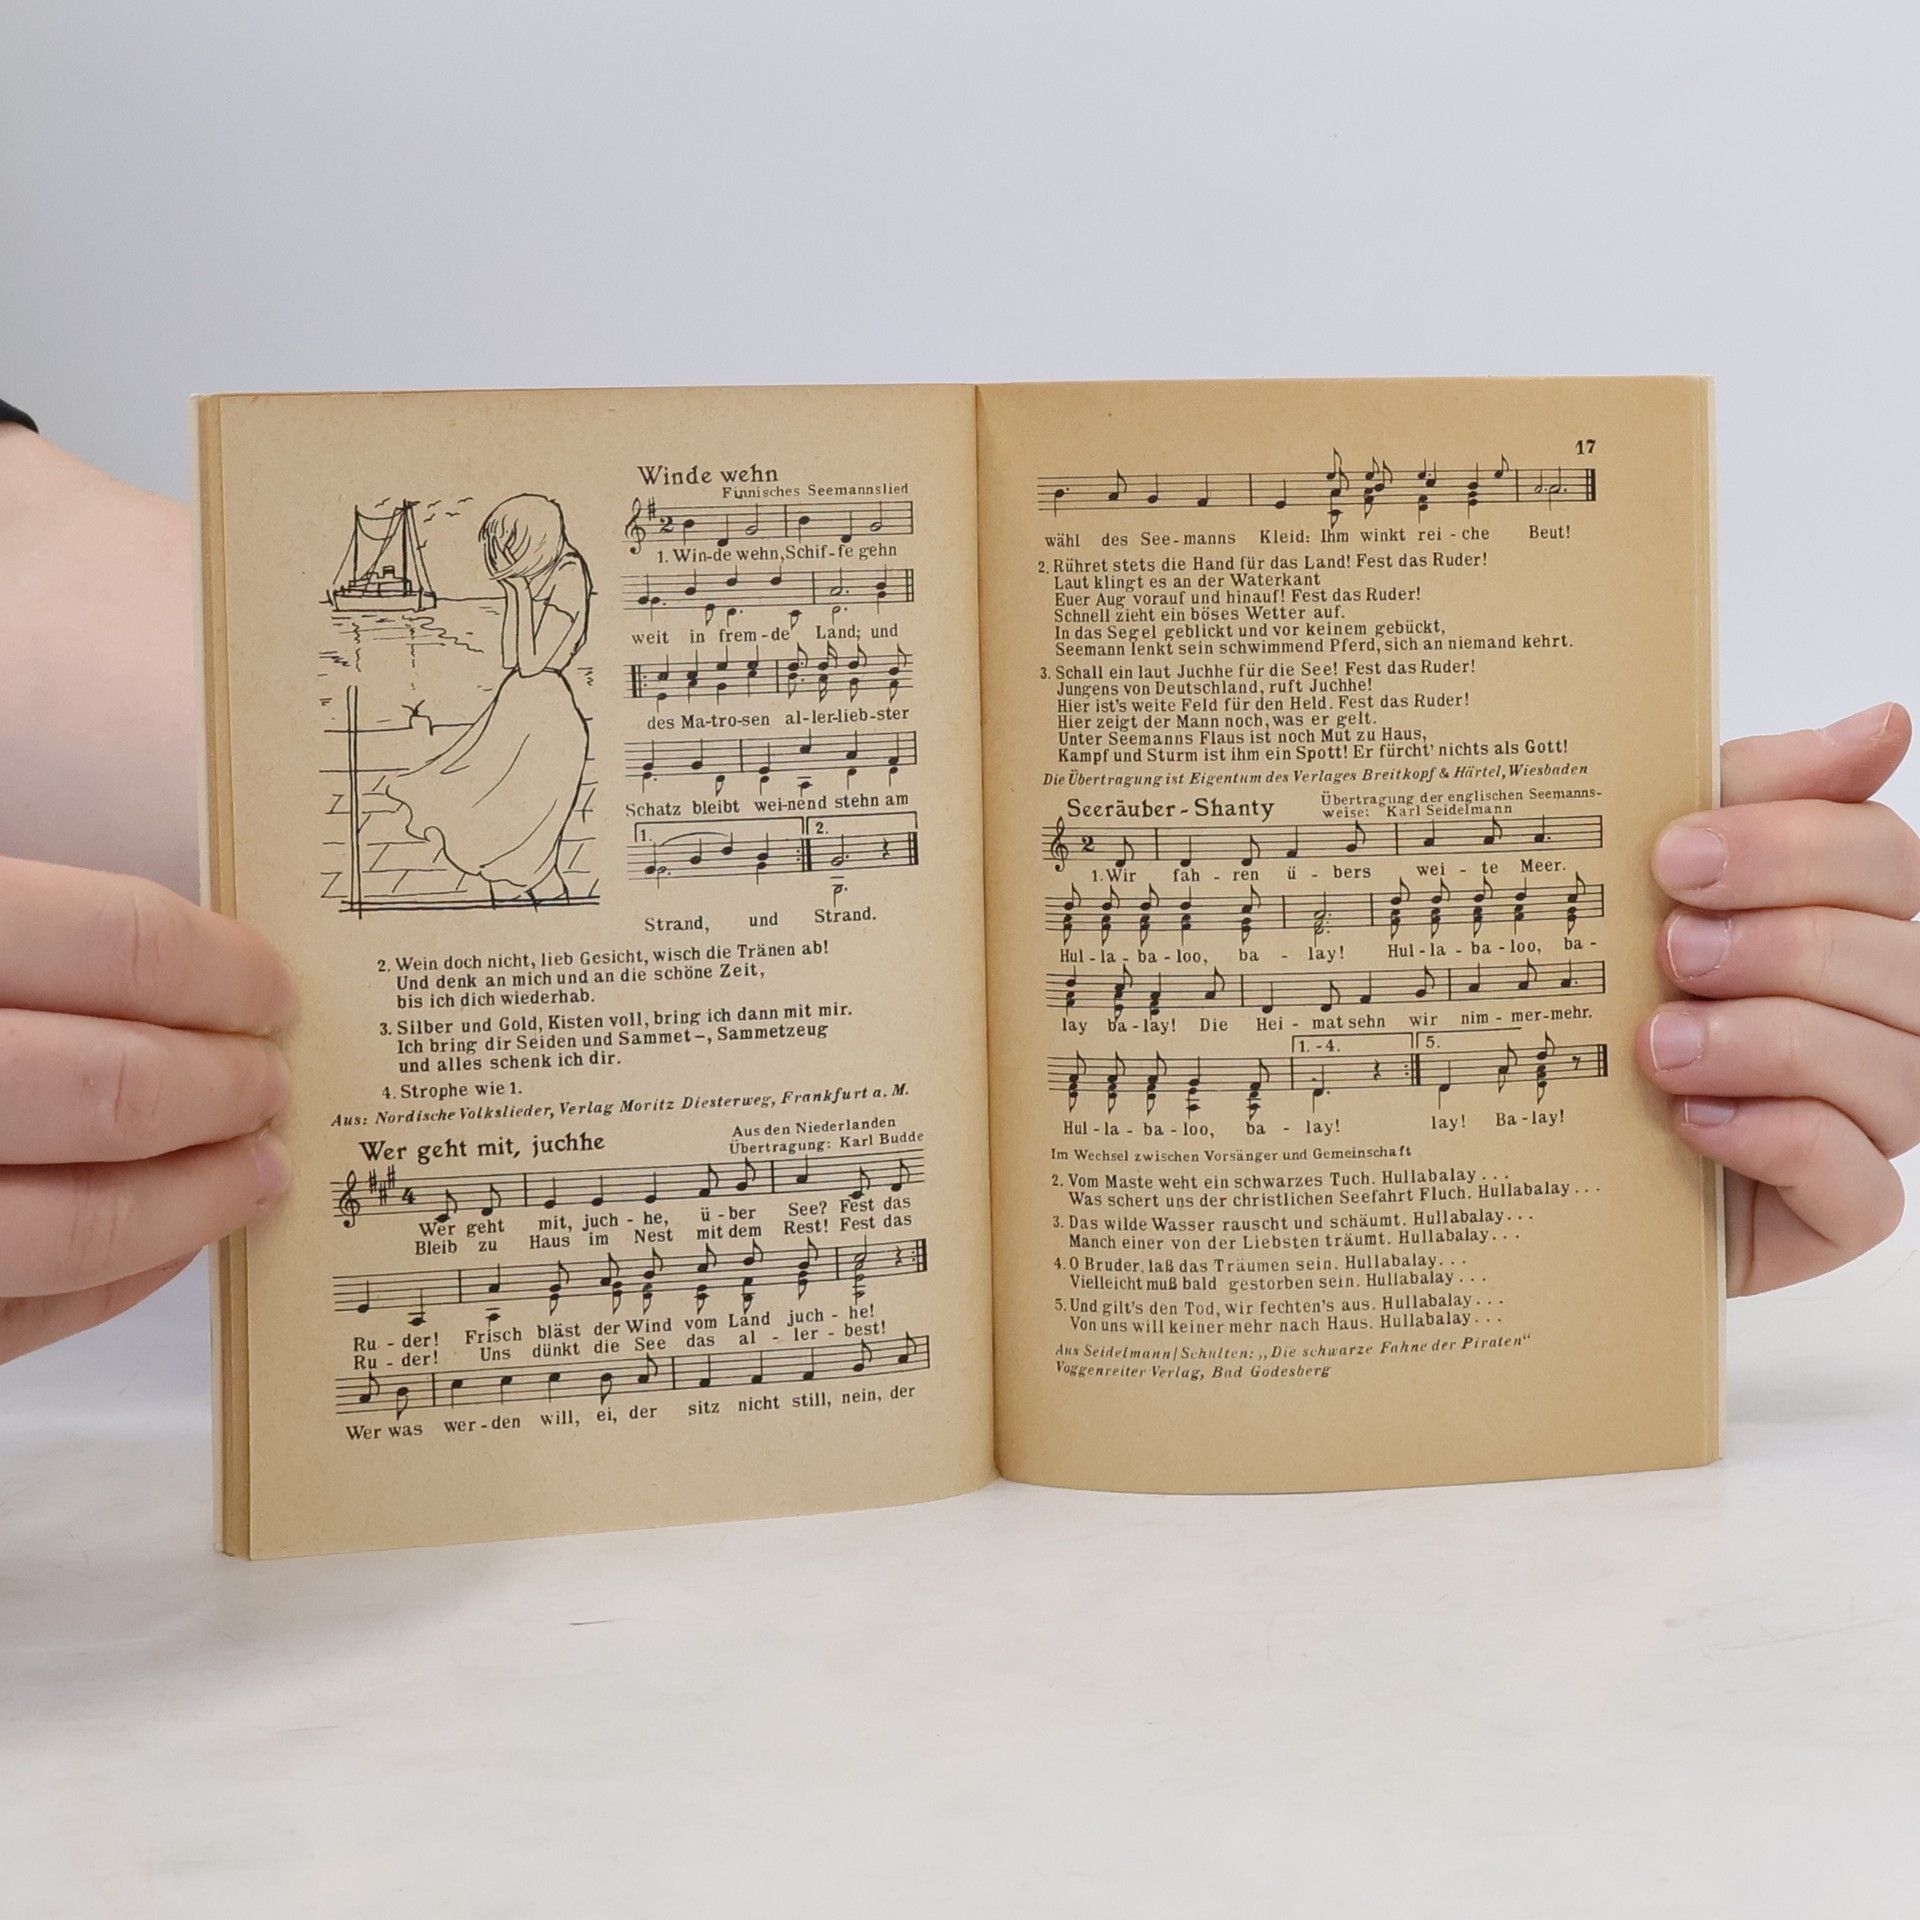 Winde wehn
Finnisches Seemannslied
1. Win-de wehn, Schif-fe gehn
weit in frem-de Land; und
des Ma-tro-sen al-ler-lieb-ster
Schatz bleibt wei-nend stehn am
1. 2.
Strand, und Strand.
2. Wein doch nicht, lieb Gesicht, wisch die Tränen ab!
Und denk an mich und an die schöne Zeit,
bis ich dich wiederhab.
3. Silber und Gold, Kisten voll, bring ich dann mit mir.
Ich bring dir Seiden und Sammet-, Sammetzeug
und alles schenk ich dir.
4. Strophe wie 1.
Aus: Nordische Volkslieder, Verlag Moritz Diesterweg, Frankfurt a. M.
Wer geht mit, juchhe
Aus den Niederlanden
Übertragung: Karl Budde
Wer geht mit, juch - he, ü - ber See? Fest das
Bleib zu Haus im Nest mit dem Rest! Fest das
Ru - der! Frisch bläst der Wind vom Land juch - he!
Ru - der! Uns dünkt die See das al - ler - best!
Wer was wer - den will, ei, der sitz nicht still, nein, der
17
wähl des See - manns Kleid: Ihm winkt rei - che Beut!
2. Rühret stets die Hand für das Land! Fest das Ruder!
Laut klingt es an der Waterkant
Euer Aug vorauf und hinauf! Fest das Ruder!
Schnell zieht ein böses Wetter auf.
In das Segel geblickt und vor keinem gebückt,
Seemann lenkt sein schwimmend Pferd, sich an niemand kehrt.
3. Schall ein laut Juchhe für die See! Fest das Ruder!
Jungens von Deutschland, ruft Juchhe!
Hier ist's weite Feld für den Held. Fest das Ruder!
Hier zeigt der Mann noch, was er gelt.
Unter Seemanns Flaus ist noch Mut zu Haus,
Kampf und Sturm ist ihm ein Spott! Er fürcht' nichts als Gott!
Die Übertragung ist Eigentum des Verlages Breitkopf & Härtel, Wiesbaden
Seeräuber - Shanty
Übertragung der englischen Seemanns-
weise: Karl Seidelmann
1. Wir fah - ren ü - bers wei - te Meer.
Hul - la - ba - loo, ba - lay! Hul - la - ba - loo, ba -
lay ba - lay! Die Hei - mat sehn wir nim - mer - mehr.
1. - 4. 5.
Hul - la - ba - loo, ba - lay! lay! Ba - lay!
Im Wechsel zwischen Vorsänger und Gemeinschaft
2. Vom Maste weht ein schwarzes Tuch. Hullabalay . . .
Was schert uns der christlichen Seefahrt Fluch. Hullabalay . . .
3. Das wilde Wasser rauscht und schäumt. Hullabalay . . .
Manch einer von der Liebsten träumt. Hullabalay . . .
4. O Bruder, laß das Träumen sein. Hullabalay . . .
Vielleicht muß bald gestorben sein. Hullabalay . . .
5. Und gilt's den Tod, wir fechten's aus. Hullabalay . . .
Von uns will keiner mehr nach Haus. Hullabalay . . .
Aus Seidelmann/Schulten: „Die schwarze Fahne der Piraten“
Voggenreiter Verlag, Bad Godesberg